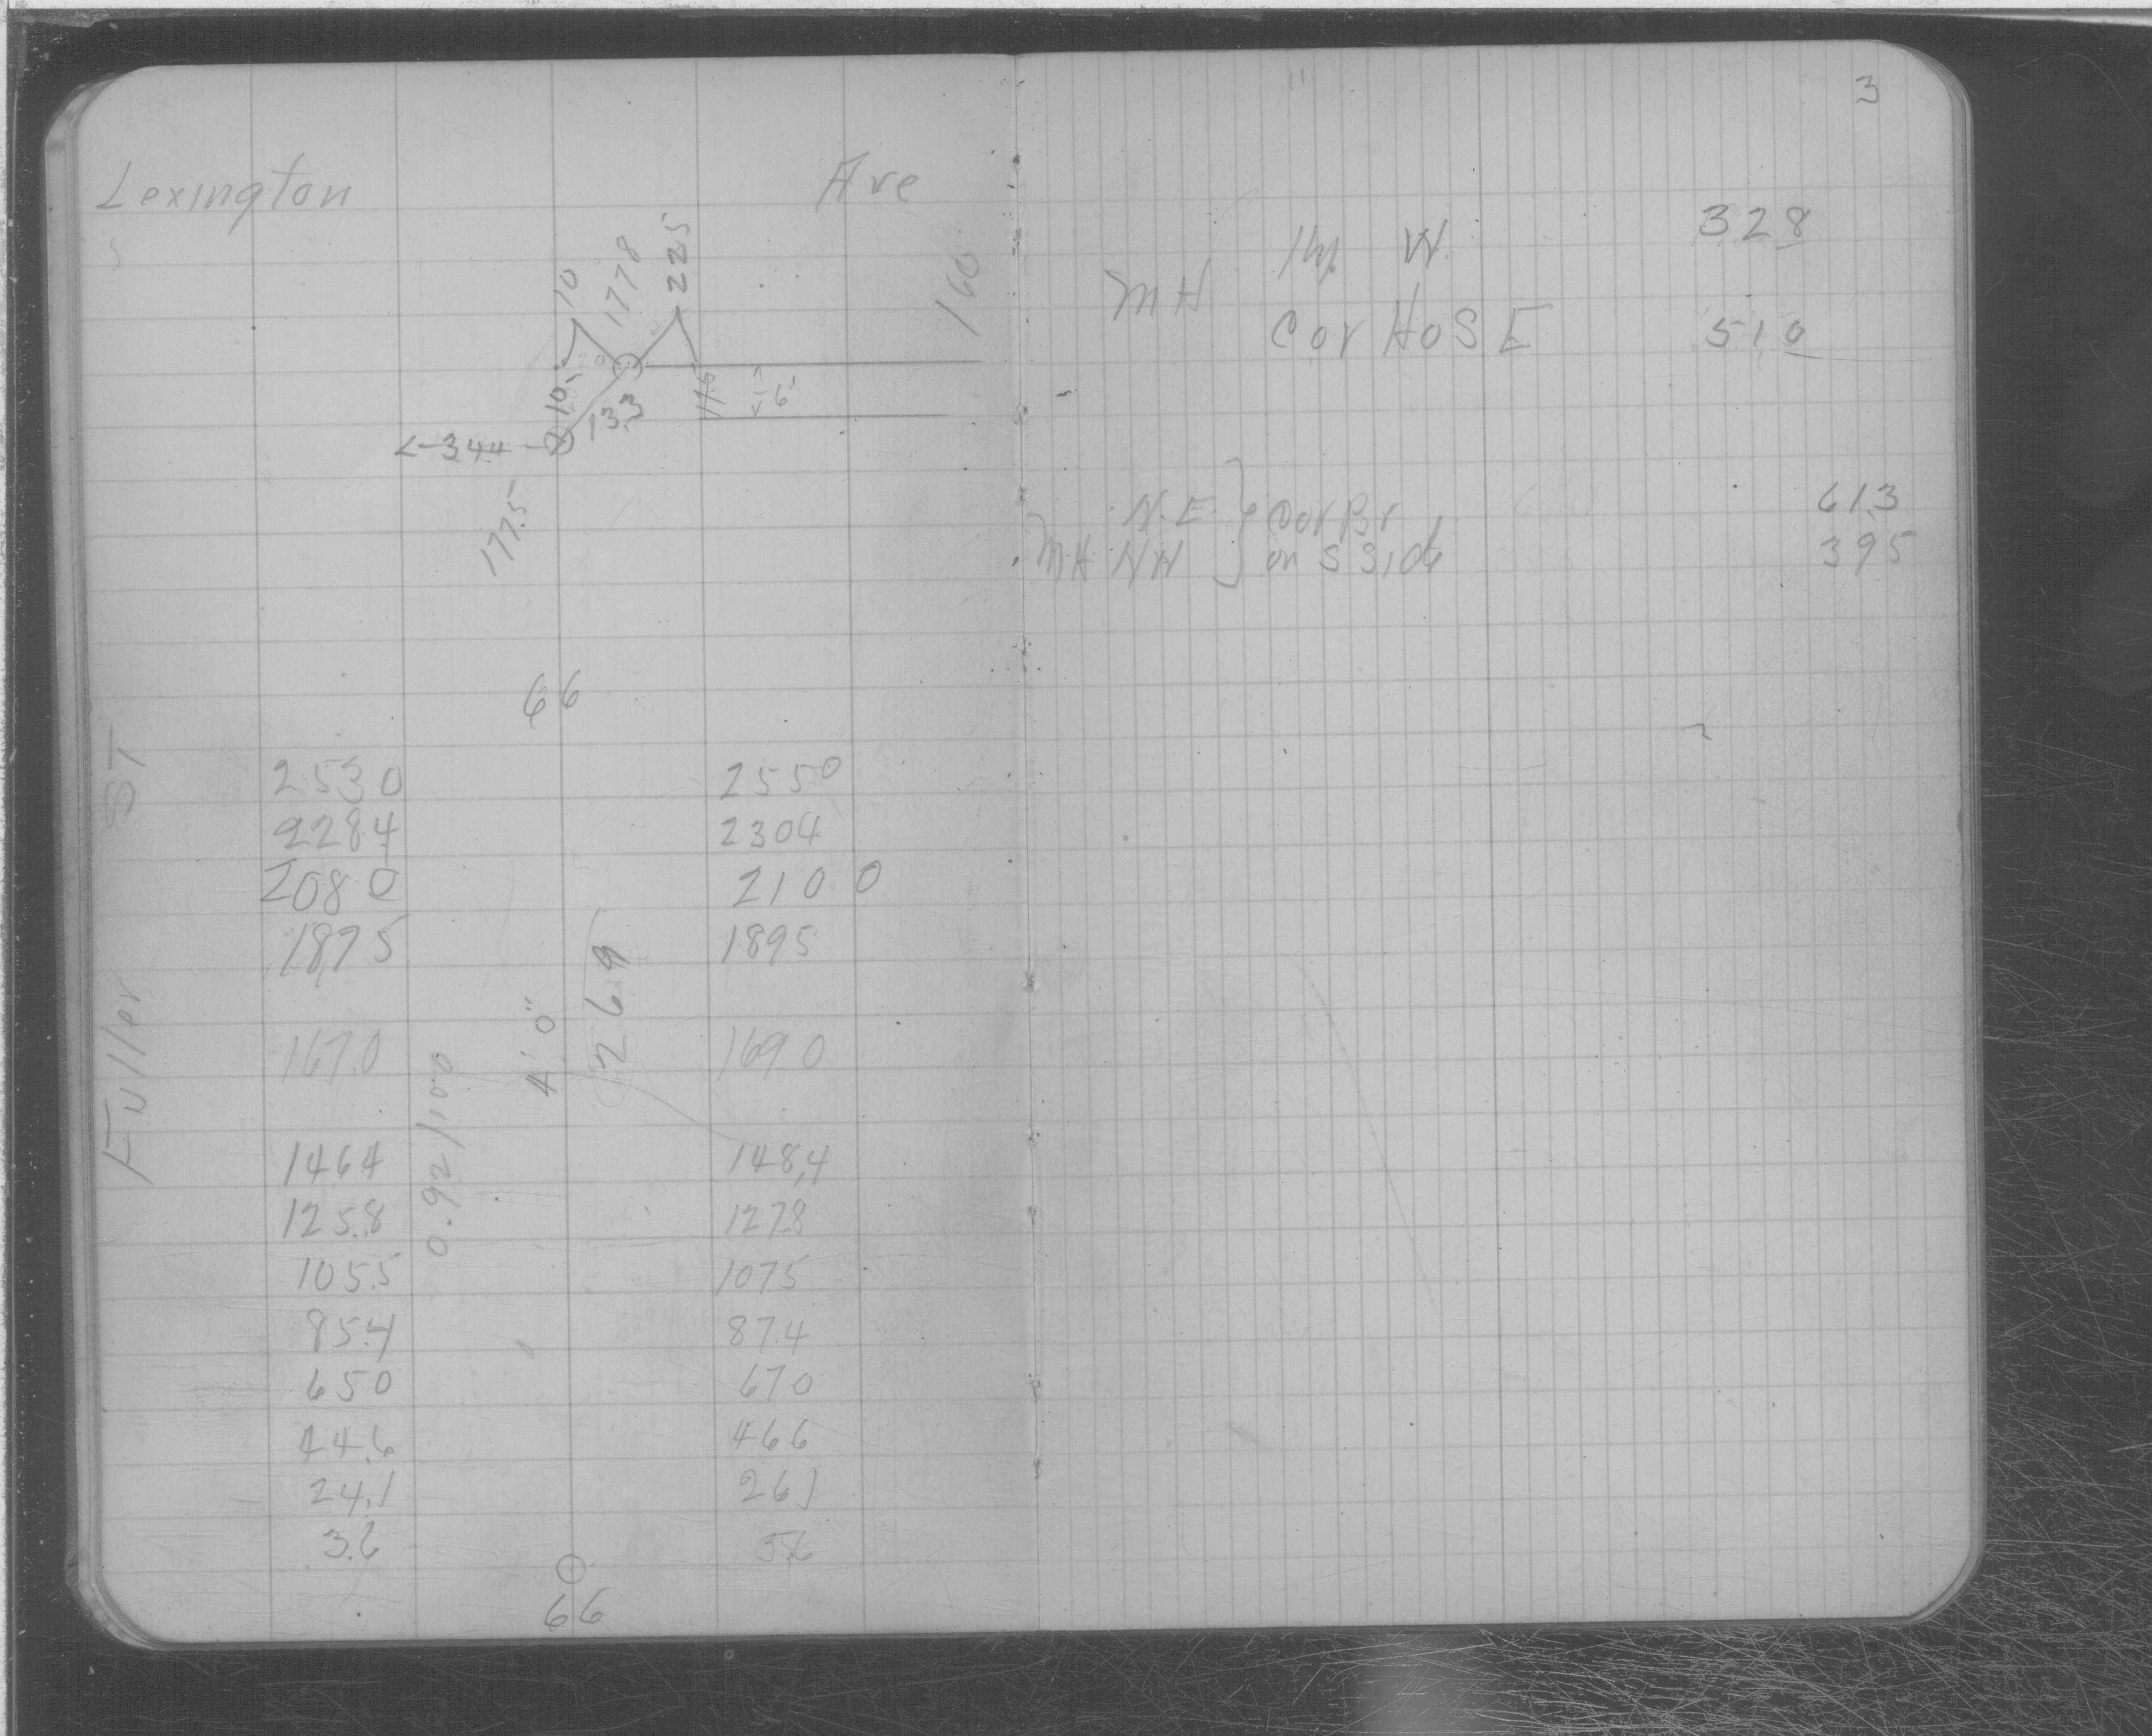 3
Lexington Ave
10
1778
22.5
160
10
13.3
6"
344
177.5
66
ST
Fuller
2530 2550
2284 2304
2080 2100
1875 1895
167.0 169.0
1464 148,4
125.8 1278
105.5 1075
85.4 87.4
650 670
44.6 466
24.1 261
3.6 5.6
0.92/100
4'0"
269
66
MH
Hy. W. 328
Cor HoSE 510
N.E. } Cor Br 613
MH NW } on S Side 395